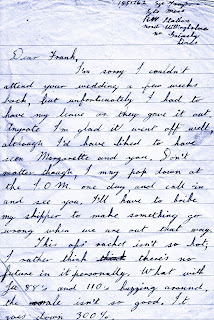 1451762 Sgt
Sgts Mess
RAF Station
North Killingholme
Nr Grimsby
Lincs
Dear Frank,
I'm sorry I couldn't
attend your wedding a few weeks
back, but unfortunately I had to
have my leave as they gave it out.
Anyrate I'm glad it went off well
although I'd have liked to have
seen Margarette and you. Don't
matter though I may pop down at
the I.O.M. one day and call in
and see you. I'll have to bribe
my skipper to make something go
wrong when we are out that way.
This ops' racket isn't so hot,
I rather think there's no
future in it personally. What with
Ju 88's and 110's buzzing around,
the morale isn't so good. It
goes down 300%.